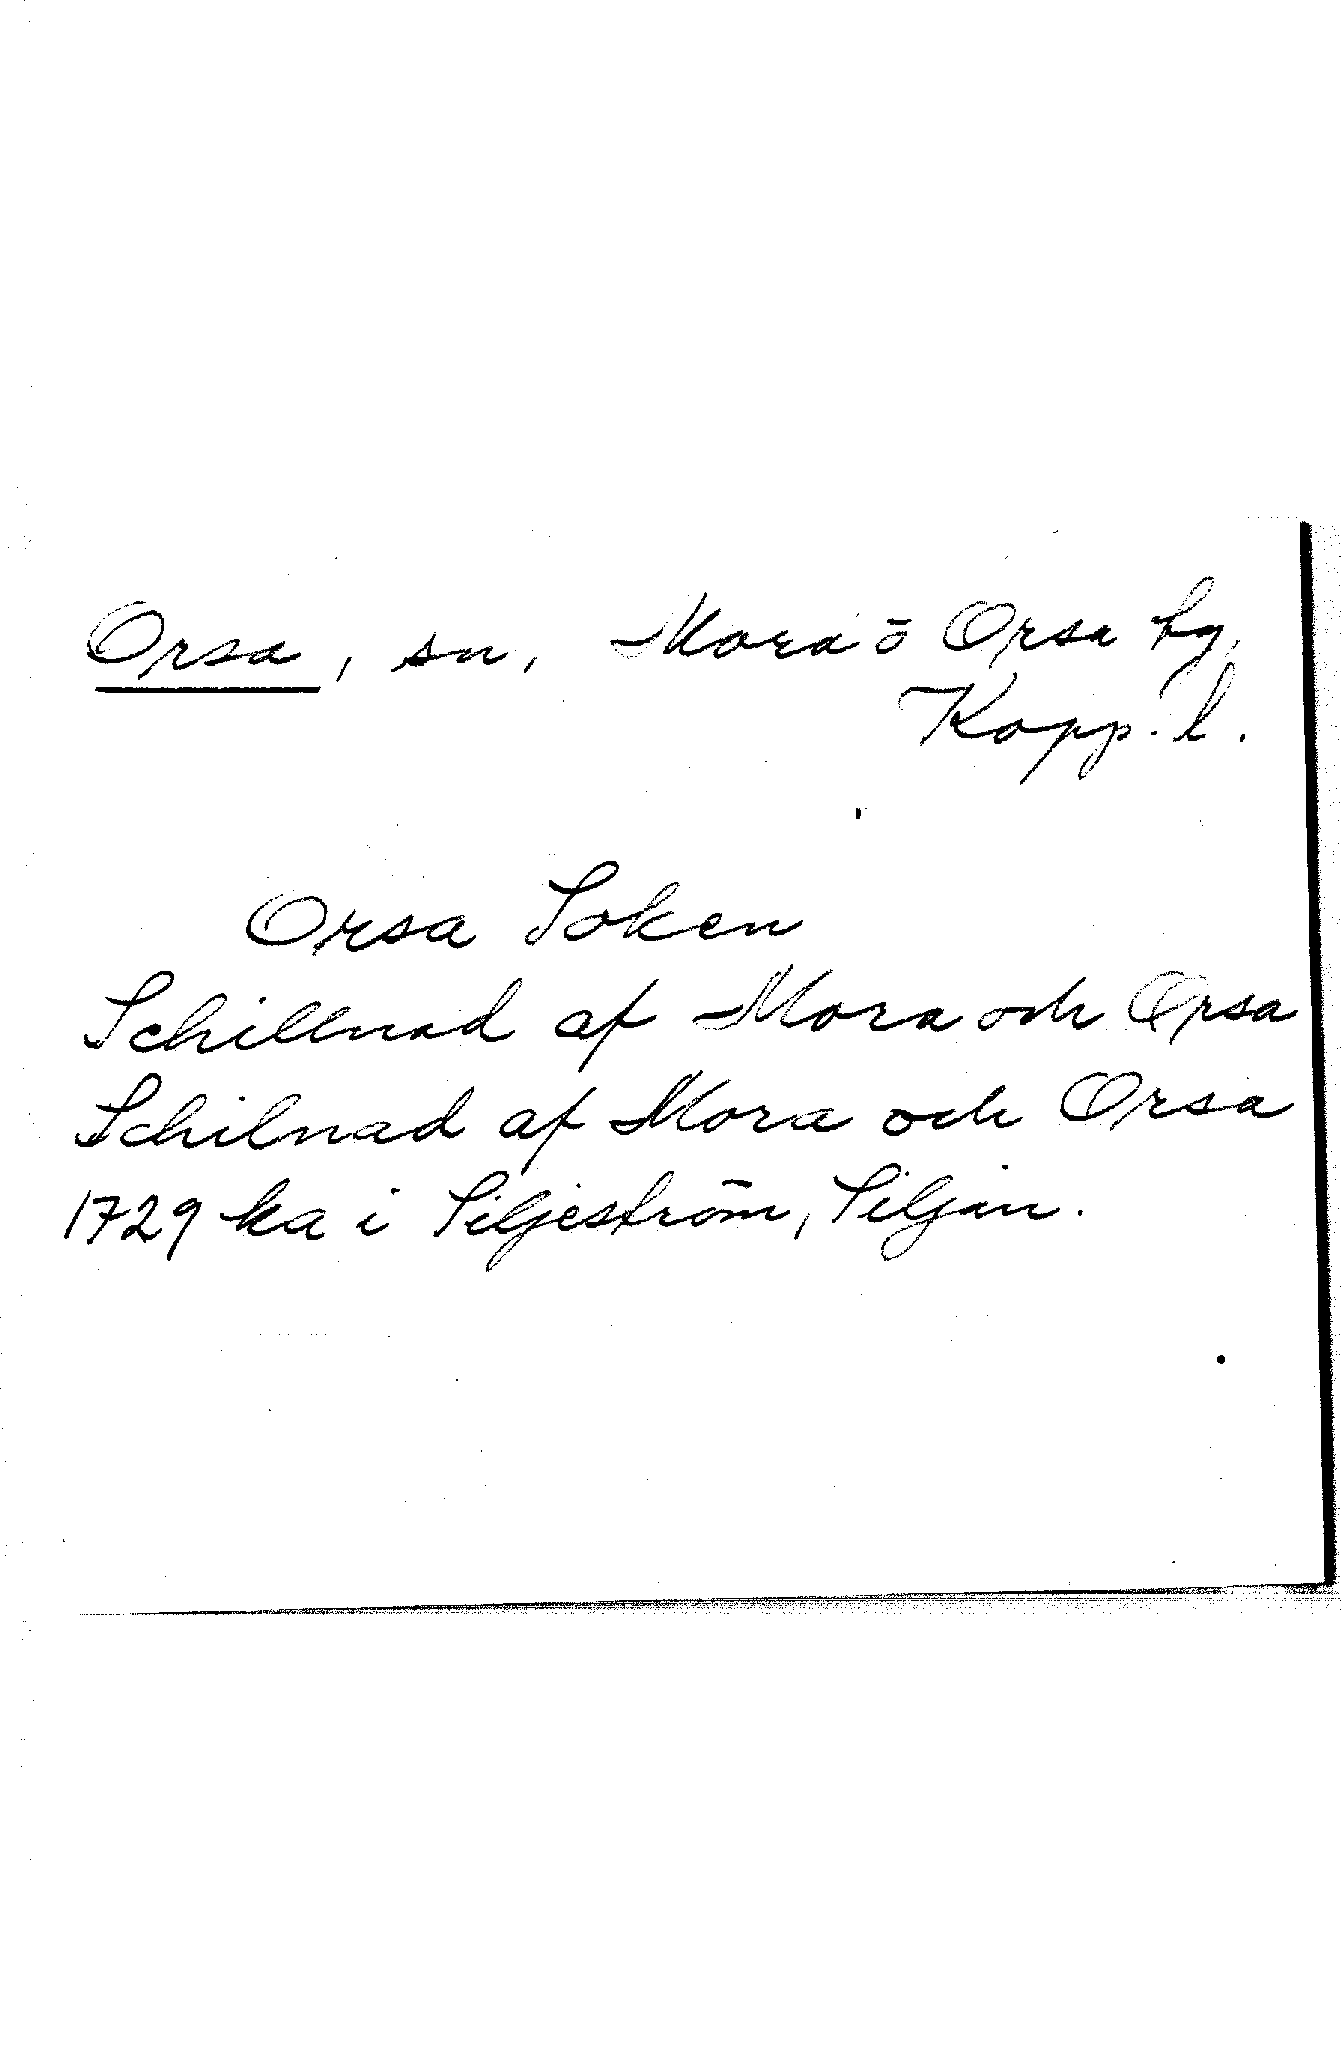 Orsa, sn, Mora o Orsa tg,
Kopp. l.
Orsa Soken
Schillnad af Mora och Orsa
Schilnad af Mora och Orsa
1729 ka i Siljeström, Siljan.